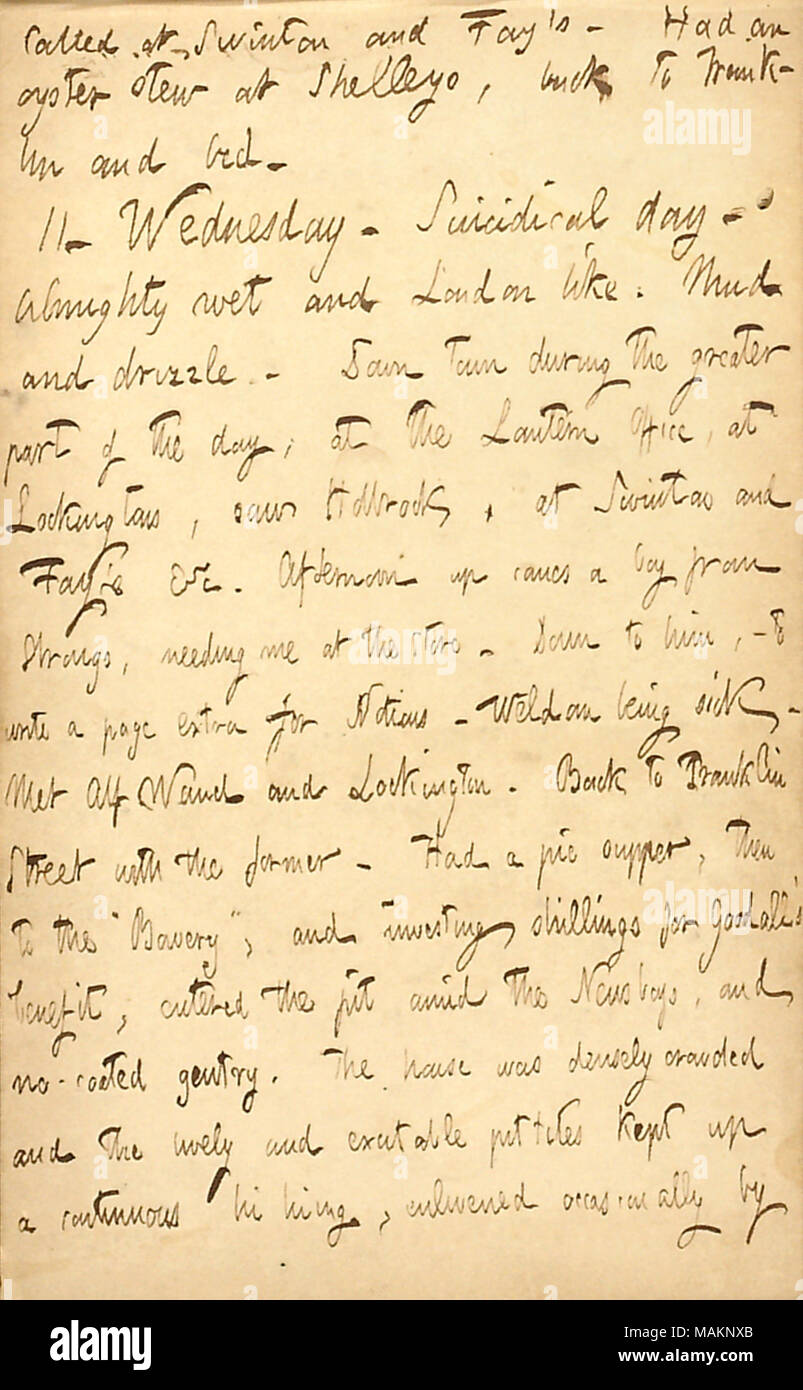 Called at Swinton and Fay's - Had an
oyster stew at Shelleys, back to Frank-
lin and bed -
11 - Wednesday - Suicidical day -
Almighty wet and London like. Mud
and drizzle. - Down town during the greater
part of the day, at the Lantern Office, at
Lockingtons, saw Holbrook, at Swinton and
Fay's &c. Afternoon up comes a boy from
Strongs, needing me at the store - Down to him, - &
write a page extra for Notions - Weldon being sick -
Met Alf Waud and Lockington. Back to Franklin
Street with the former - Had a pie supper, then
to the "Bowery", and investing shillings for Goodall's
benefit, entered the pit amid the Newsboys, and
no-coated gentry. The house was densely crowded
and the lively and excitable pittites kept up
a continuous hi hiing, enlivened occasionally by
alamy
alamy
alamy
alamy
Image ID: MAKNXB
www.alamy.com